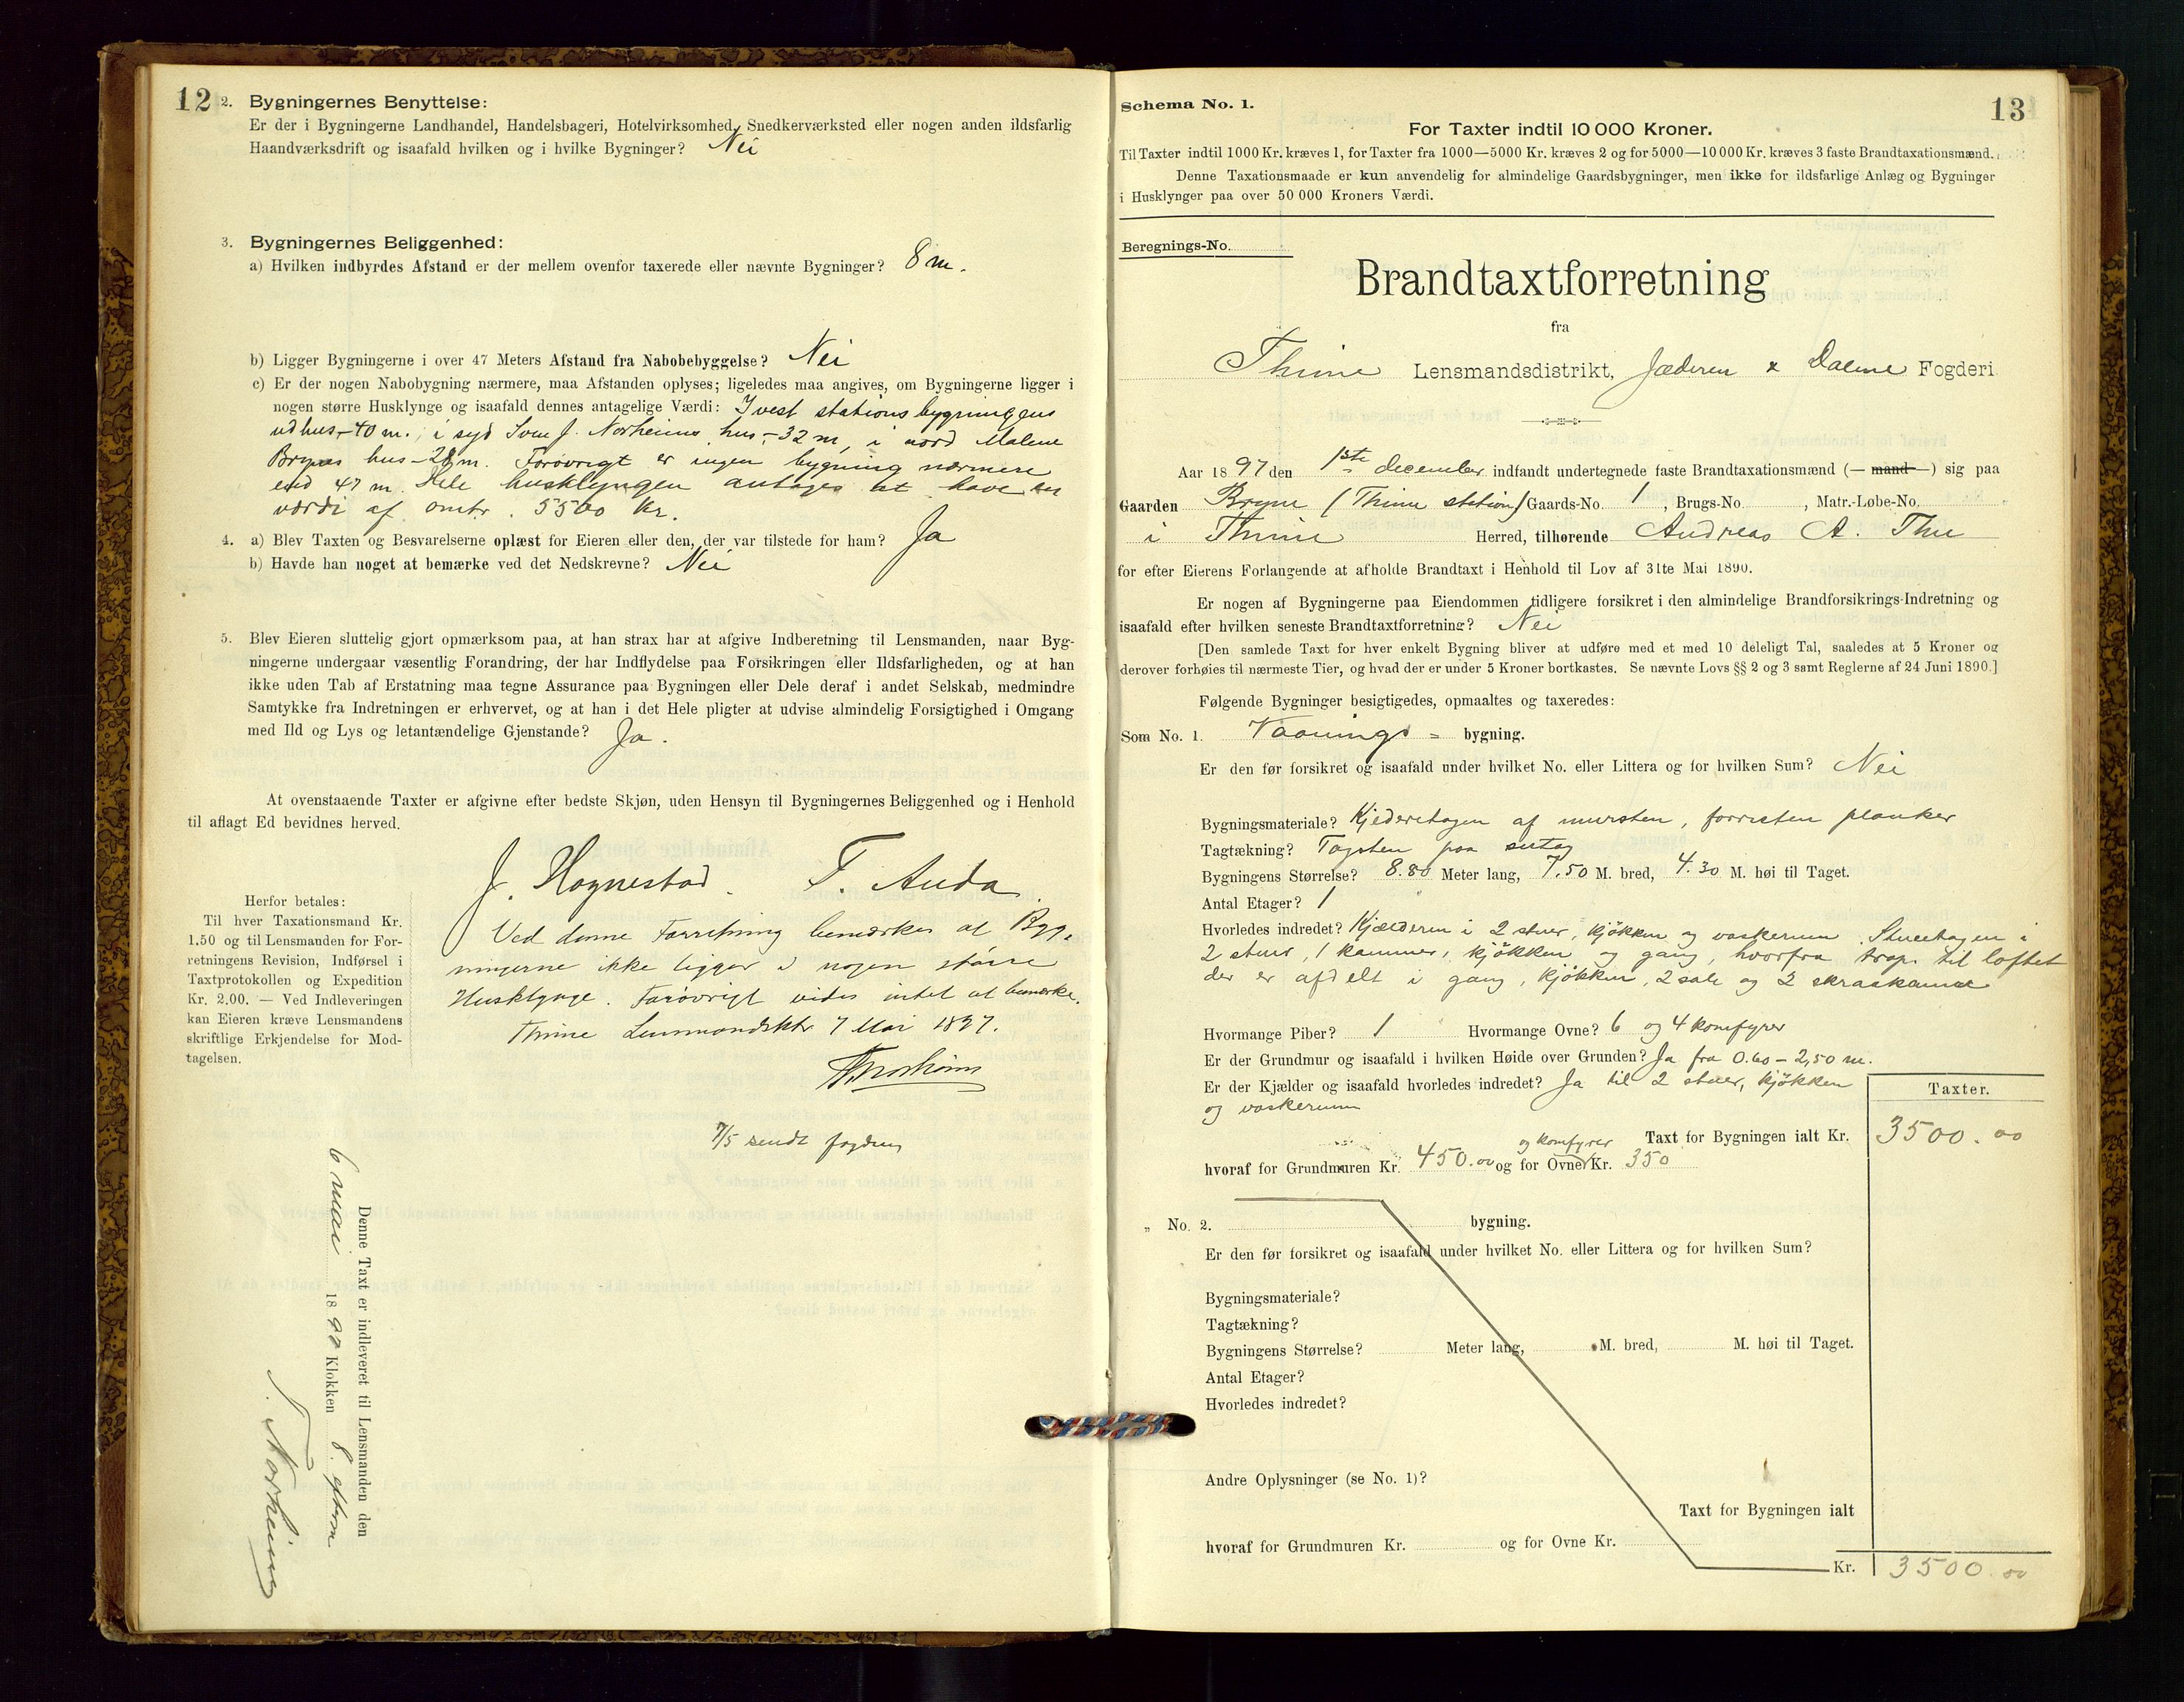 12
2. Bygningernes Benyttelse:
Er der i Bygningerne Landhandel, Handelsbageri, Hotelvirksomhed, Snedkerværksted eller nogen anden ildsfarlig
Haandværksdrift og isaafald hvilken og i hvilke Bygninger? Nei
3. Bygningernes Beliggenhed:
a) Hvilken indbyrdes Afstand er der mellem ovenfor taxerede eller nævnte Bygninger? 8 m.
b) Ligger Bygningerne i over 47 Meters Afstand fra Nabobebyggelse? Nei
c) Er der nogen Nabobygning nærmere, maa Afstanden oplyses; ligeledes maa angives, om Bygningerne ligger i
nogen større Husklynge og isaafald dennes antagelige Værdi: I vest stationsbygningens
udhus - 40 m., i syd Sven J. Norheims hus - 32 m, i nord Malene
Brynes hus - 28 m. Forøvrigt er ingen bygning nærmere
end 47 m. Hele husklyngen antages at have en
værdi af omtr. 5500 Kr.
4. a) Blev Taxten og Besvarelserne oplæst for Eieren eller den, der var tilstede for ham? Ja
b) Havde han noget at bemærke ved det Nedskrevne? Nei
5. Blev Eieren sluttelig gjort opmærksom paa, at han strax har at afgive Indberetning til Lensmanden, naar Byg-
ningerne undergaar væsentlig Forandring, der har Indflydelse paa Forsikringen eller Ildsfarligheden, og at han
ikke uden Tab af Erstatning maa tegne Assurance paa Bygningen eller Dele deraf i andet Selskab, medmindre
Samtykke fra Indretningen er erhvervet, og at han i det Hele pligter at udvise almindelig Forsigtighed i Omgang
med Ild og Lys og letantændelige Gjenstande? Ja.
At ovenstaaende Taxter er afgivne efter bedste Skjøn, uden Hensyn til Bygningernes Beliggenhed og i Henhold
til aflagt Ed bevidnes herved.
J. Hognestad. T. Anda
Herfor betales:
Til hver Taxationsmand Kr.
1.50 og til Lensmanden for For-
retningens Revision, Indførsel i
Taxtprotokollen og Expedition
Kr. 2.00. — Ved Indleveringen
kan Eieren kræve Lensmandens
skriftlige Erkjendelse for Mod-
tagelsen.
Ved denne Forretning bemærkes at Byg-
ningerne ikke ligger i nogen større
Husklynge. Forøvrigt vides intet at bemærke.
Thime Lensmandsktr 7 Mai 1897.
Norheim
7/5 sendt fogden
Denne Taxt er indleveret til Lensmanden den
6 mai 1897 Klokken 8 efterm
Norheim
13
Schema No. 1.
For Taxter indtil 10 000 Kroner.
Til Taxter indtil 1000 Kr. kræves 1, for Taxter fra 1000—5000 Kr. kræves 2 og for 5000—10 000 Kr. kræves 3 faste Brandtaxationsmænd.
Denne Taxationsmaade er kun anvendelig for almindelige Gaardsbygninger, men ikke for ildsfarlige Anlæg og Bygninger
i Husklynger paa over 50 000 Kroners Værdi.
Beregnings-No.
Brandtaxtforretning
fra
Thime Lensmandsdistrikt, Jæderen & Dalene Fogderi
Aar 1897 den 1ste december indfandt undertegnede faste Brandtaxationsmænd (— mand —) sig paa
Gaarden Bryne (Thime station) Gaards-No. 1, Brugs-No. , Matr.-Løbe-No.
i Thime Herred, tilhørende Andreas A. Thu
for efter Eierens Forlangende at afholde Brandtaxt i Henhold til Lov af 31te Mai 1890.
Er nogen af Bygningerne paa Eiendommen tidligere forsikret i den almindelige Brandforsikrings-Indretning og
isaafald efter hvilken seneste Brandtaxtforretning? Nei
[Den samlede Taxt for hver enkelt Bygning bliver at udføre med et med 10 deleligt Tal, saaledes at 5 Kroner og
derover forhøies til nærmeste Tier, og hvad der er under 5 Kroner bortkastes. Se nævnte Lovs §§ 2 og 3 samt Reglerne af 24 Juni 1890.]
Følgende Bygninger besigtigedes, opmaaltes og taxeredes:
Som No. 1. Vaanings- bygning.
Er den før forsikret og isaafald under hvilket No. eller Littera og for hvilken Sum? Nei
Bygningsmateriale? Kjederetagen af mursten, forresten planker
Tagtækning? Tagsten paa sutag
Bygningens Størrelse? 8.80 Meter lang, 7.50 M. bred, 4.30 M. høi til Taget.
Antal Etager? 1
Hvorledes indredet? Kjælderen i 2 stuer, kjøkken og vaskerum. Stueetagen i
2 stuer, 1 kammer, kjøkken og gang, hvorfra trap. til loftet
der er afdelt i gang, kjøkken, 2 sale og 2 skraakamre
Hvormange Piber? 1 Hvormange Ovne? 6 og 4 komfyrer
Er der Grundmur og isaafald i hvilken Høide over Grunden? Ja fra 0.60 - 2,50 m.
Er der Kjælder og isaafald hvorledes indredet? Ja til 2 stuer, kjøkken
og vaskerum
Taxter.
Taxt for Bygningen ialt Kr. 3500.00
og komfyrer
hvoraf for Grundmuren Kr. 450.00 og for Ovne Kr. 350
„ No. 2. bygning.
Er den før forsikret og isaafald under hvilket No. eller Littera og for hvilken Sum?
Bygningsmateriale?
Tagtækning?
Bygningens Størrelse? Meter lang, M. bred, M. høi til Taget.
Antal Etager?
Hvorledes indredet?
Andre Oplysninger (se No. 1)?
Taxt for Bygningen ialt
hvoraf for Grundmuren Kr. og for Ovne Kr.
Kr. 3500.00